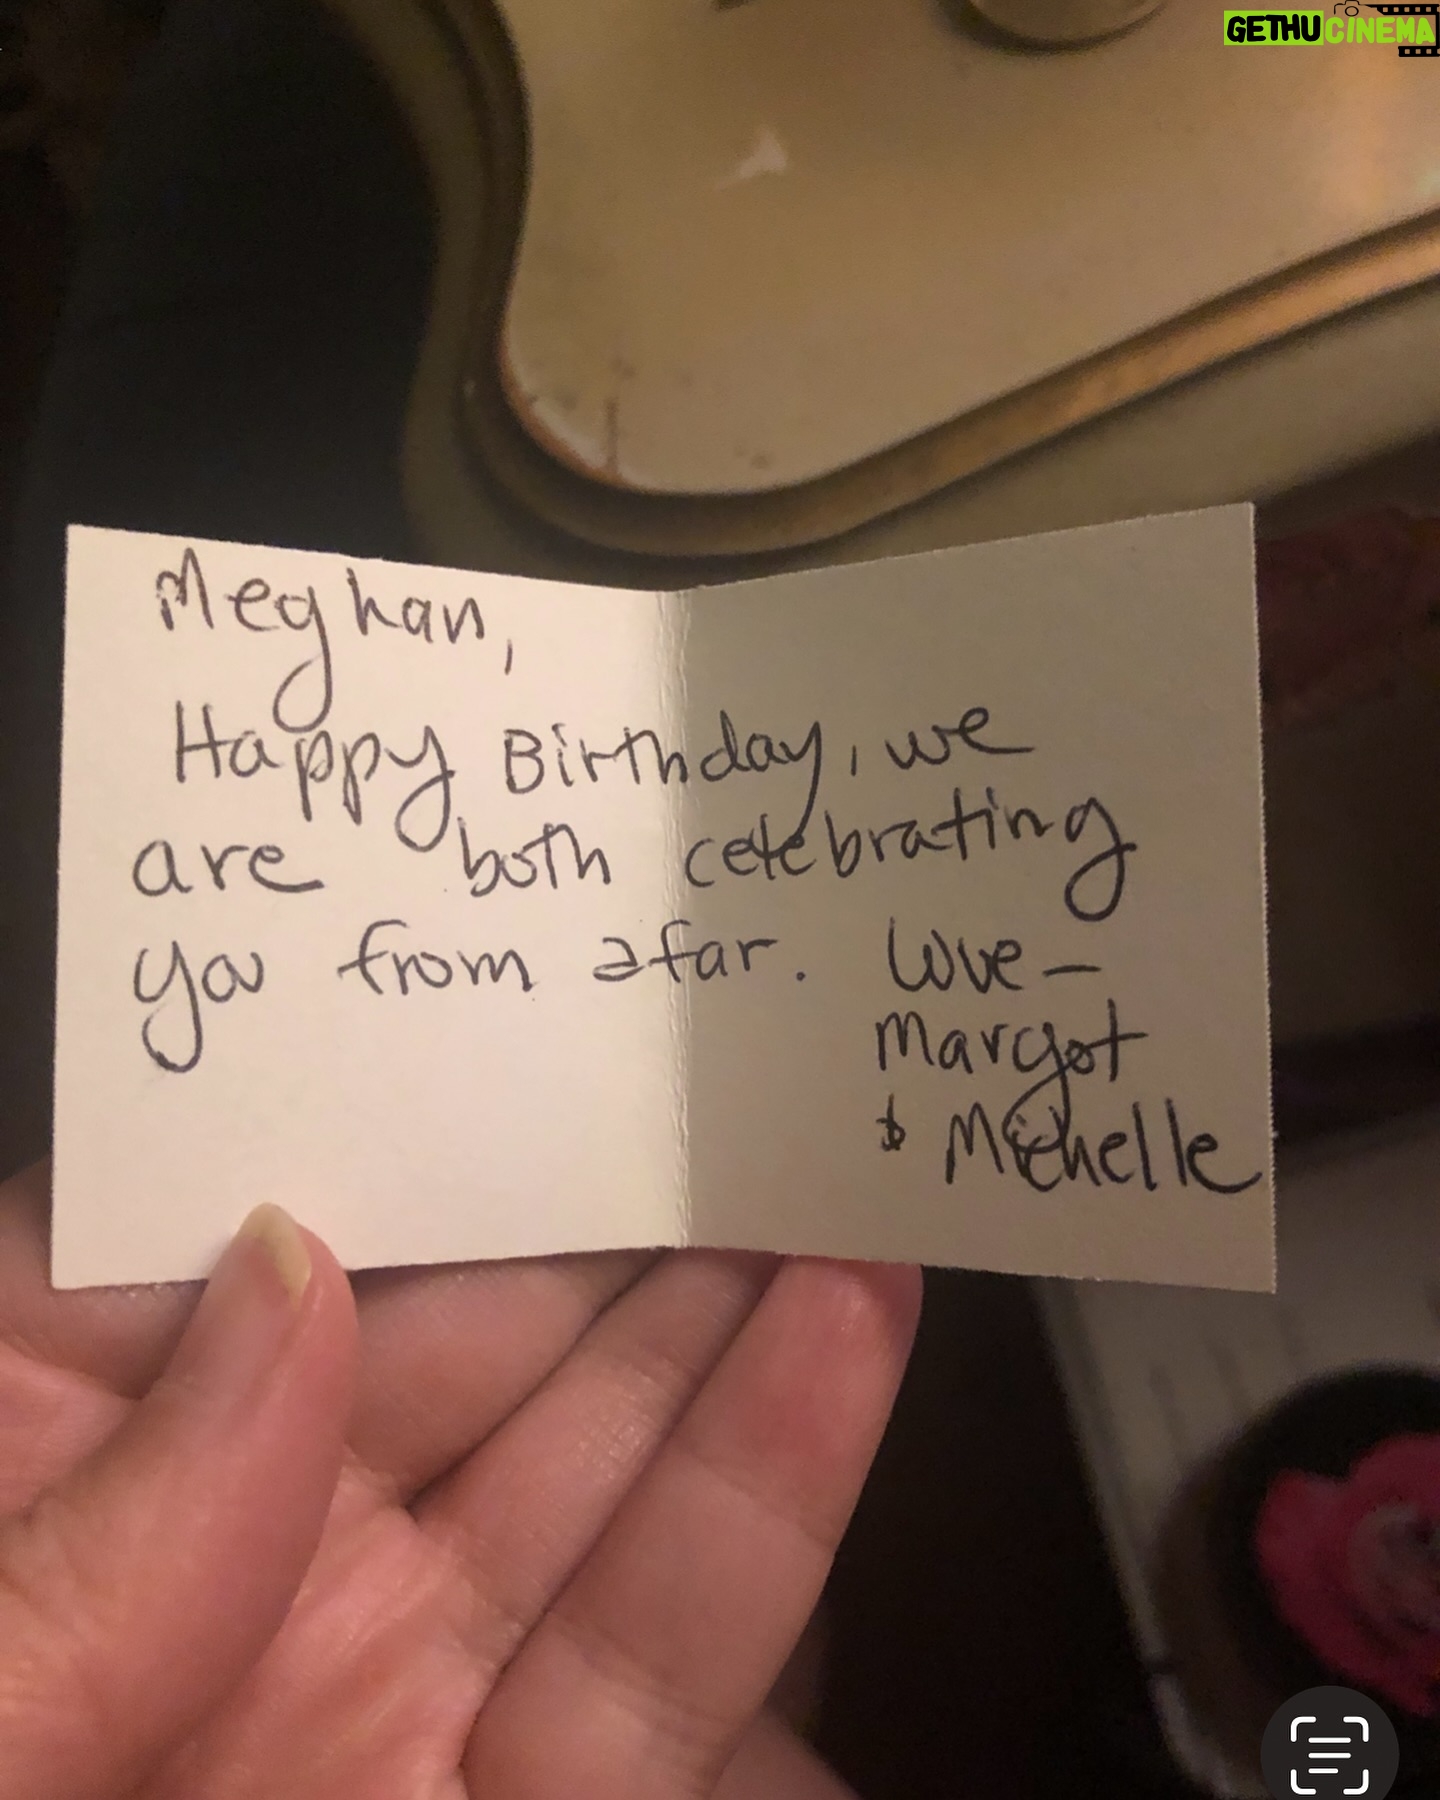 GETHUCINEMA
Meghan,
Happy Birthday, we
are both celebrating
you from afar. Love -
Margot
& Michelle